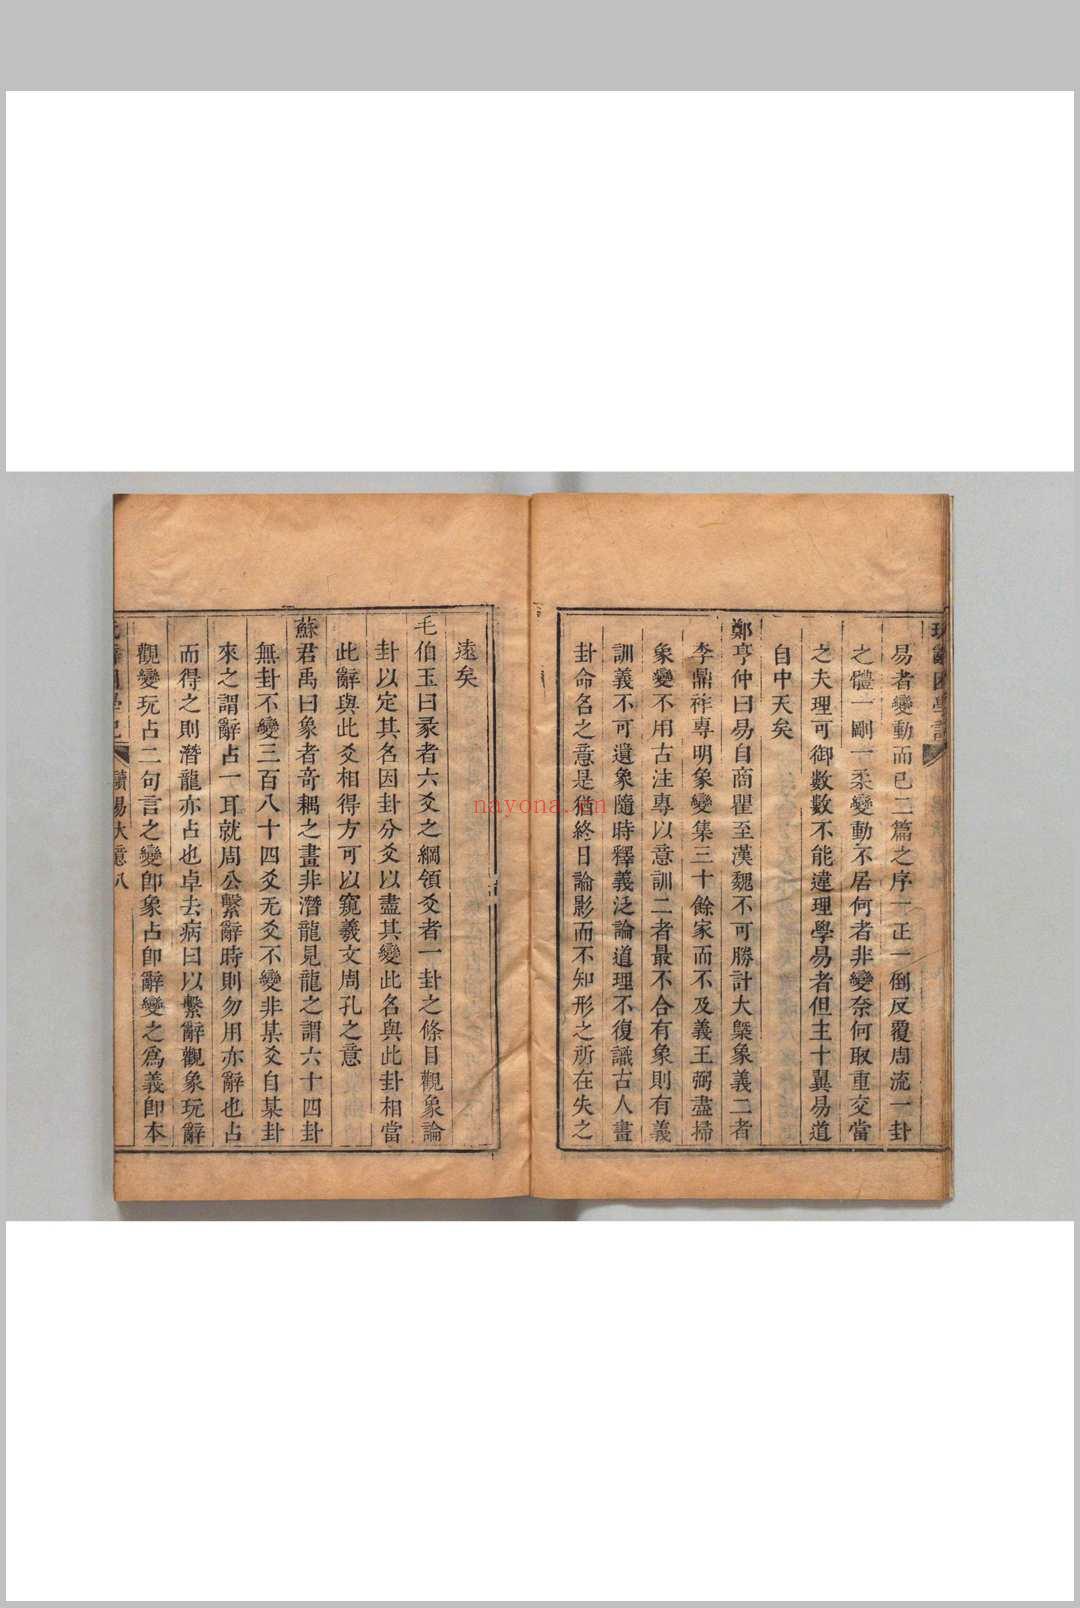 易者變動而已二篇之序一正一倒反覆周流一卦
之體一剛一柔變動不居何者非變奈何取重交當
之夫理可御數數不能違理學易者但主十翼易道
自中天矣
鄭亨仲曰易自商瞿至漢魏不可勝計大槩象義二者
李鼎祚專明象變集三十餘家而不及義王弼盡掃
象變不用古注專以意訓二者最不合有象則有義
訓義不可遺象隨時釋義泛論道理不復識古人畫
卦命名之意是猶終日論影而不知形之所在失之
遠矣
毛伯玉曰彖者六爻之綱領爻者一卦之條目觀象論
卦以定其名因卦分爻以盡其變此名與此卦相當
此辭與此爻相得方可以窺羲文周孔之意
蘇君禹曰象者奇耦之畫非潛龍見龍之謂六十四卦
無卦不變三百八十四爻无爻不變非某爻自某卦
來之謂辭占一耳就周公繫辭時則勿用亦辭也占
而得之則潛龍亦占也卓去病曰以繫辭觀象玩辭
觀變玩占二句言之變卽象占卽辭變之爲義卽本
讀易大意八
nayona.cn